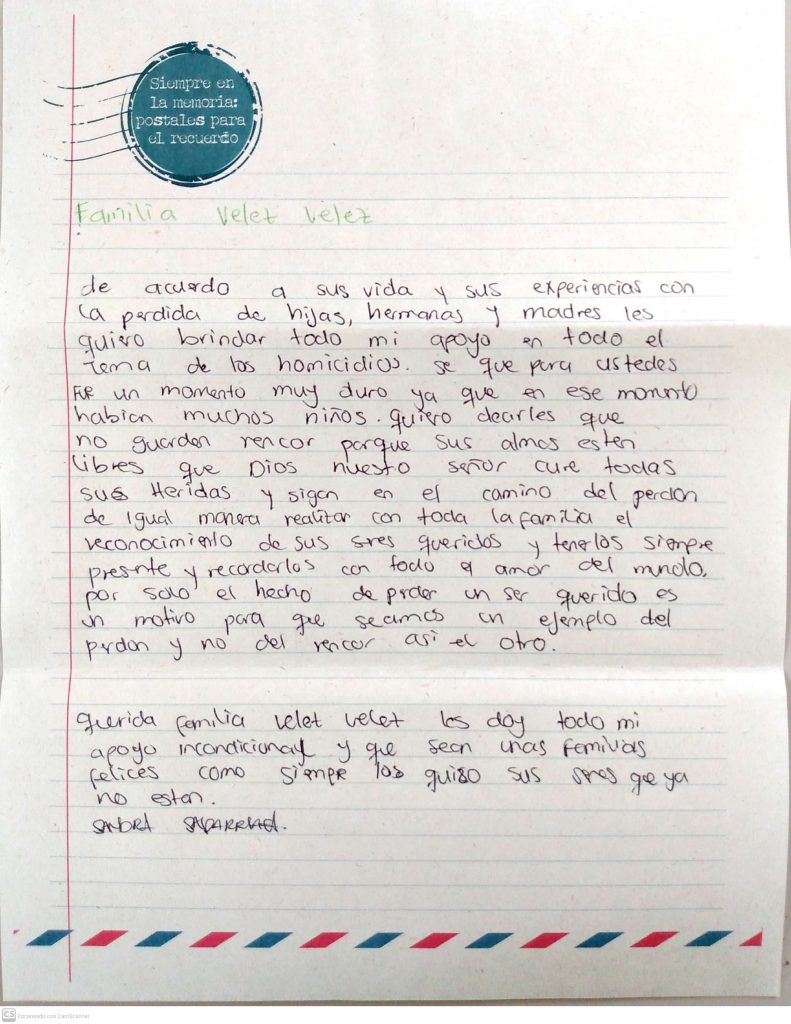 Siempre en
la memoria:
postales para
el recuerdo
Familia Velez Velez
de acuerdo a sus vida y sus experiencias con
la perdida de hijas, hermanas y madres les
quiero brindar todo mi apoyo en todo el
tema de los homicidios. se que para ustedes
Fue un momento muy duro ya que en ese momento
habian muchos niños. quiero decirles que
no guarden rencor porque sus almas esten
libres que Dios nuestro señor cure todas
sus Heridas y sigan en el camino del perdon
de igual manera realizar con toda la familia el
reconocimiento de sus seres queridos y tenerlos siempre
presente y recordarlos con todo el amor del mundo.
por solo el hecho de perder un ser querido es
un motivo para que seamos un ejemplo del
perdon y no del rencor asi el otro.
querida familia velez velez les doy todo mi
apoyo incondicional y que sean unas familias
felices como siempre los quiso sus seres que ya
no estan.
SANDRA
CS Escaneado con CamScanner